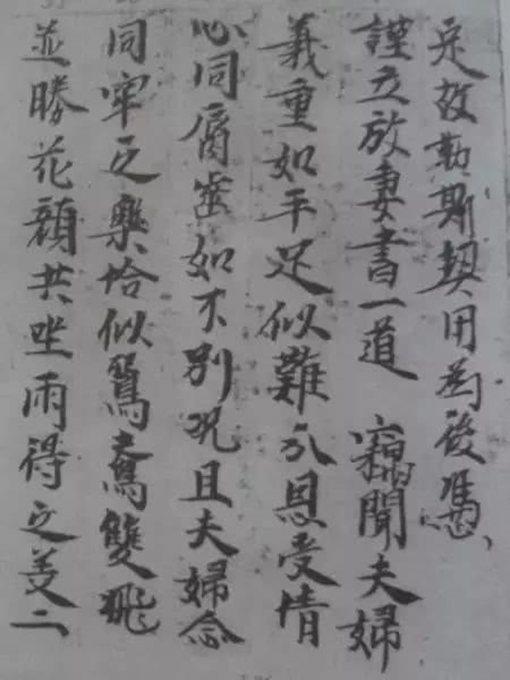 定故勒斯契用為後憑
謹立放妻書一道　竊聞夫婦
義重如手足似難分恩愛情
心同脣齒如不別況且夫婦念
同牢之樂恰似鴛鴦雙飛
並勝花顏共坐兩得之美二